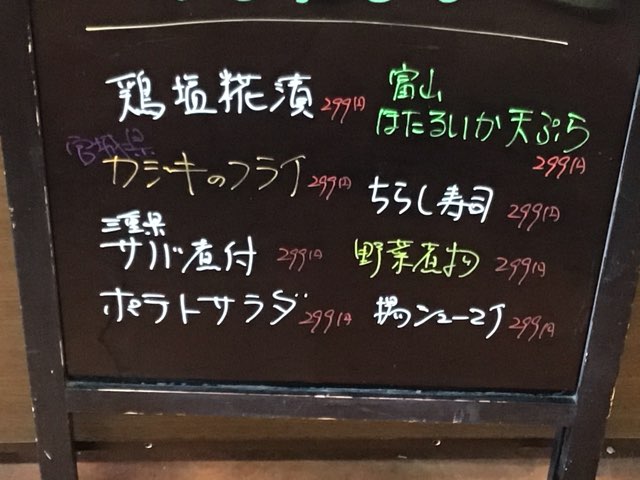 鶏塩糀漬 299円
宮城県
カジキのフライ 299円
三重県
サバ煮付 299円
ポテトサラダ 299円
富山
ほたるいか天ぷら
299円
ちらし寿司 299円
野菜煮物 299円
揚シューマイ 299円